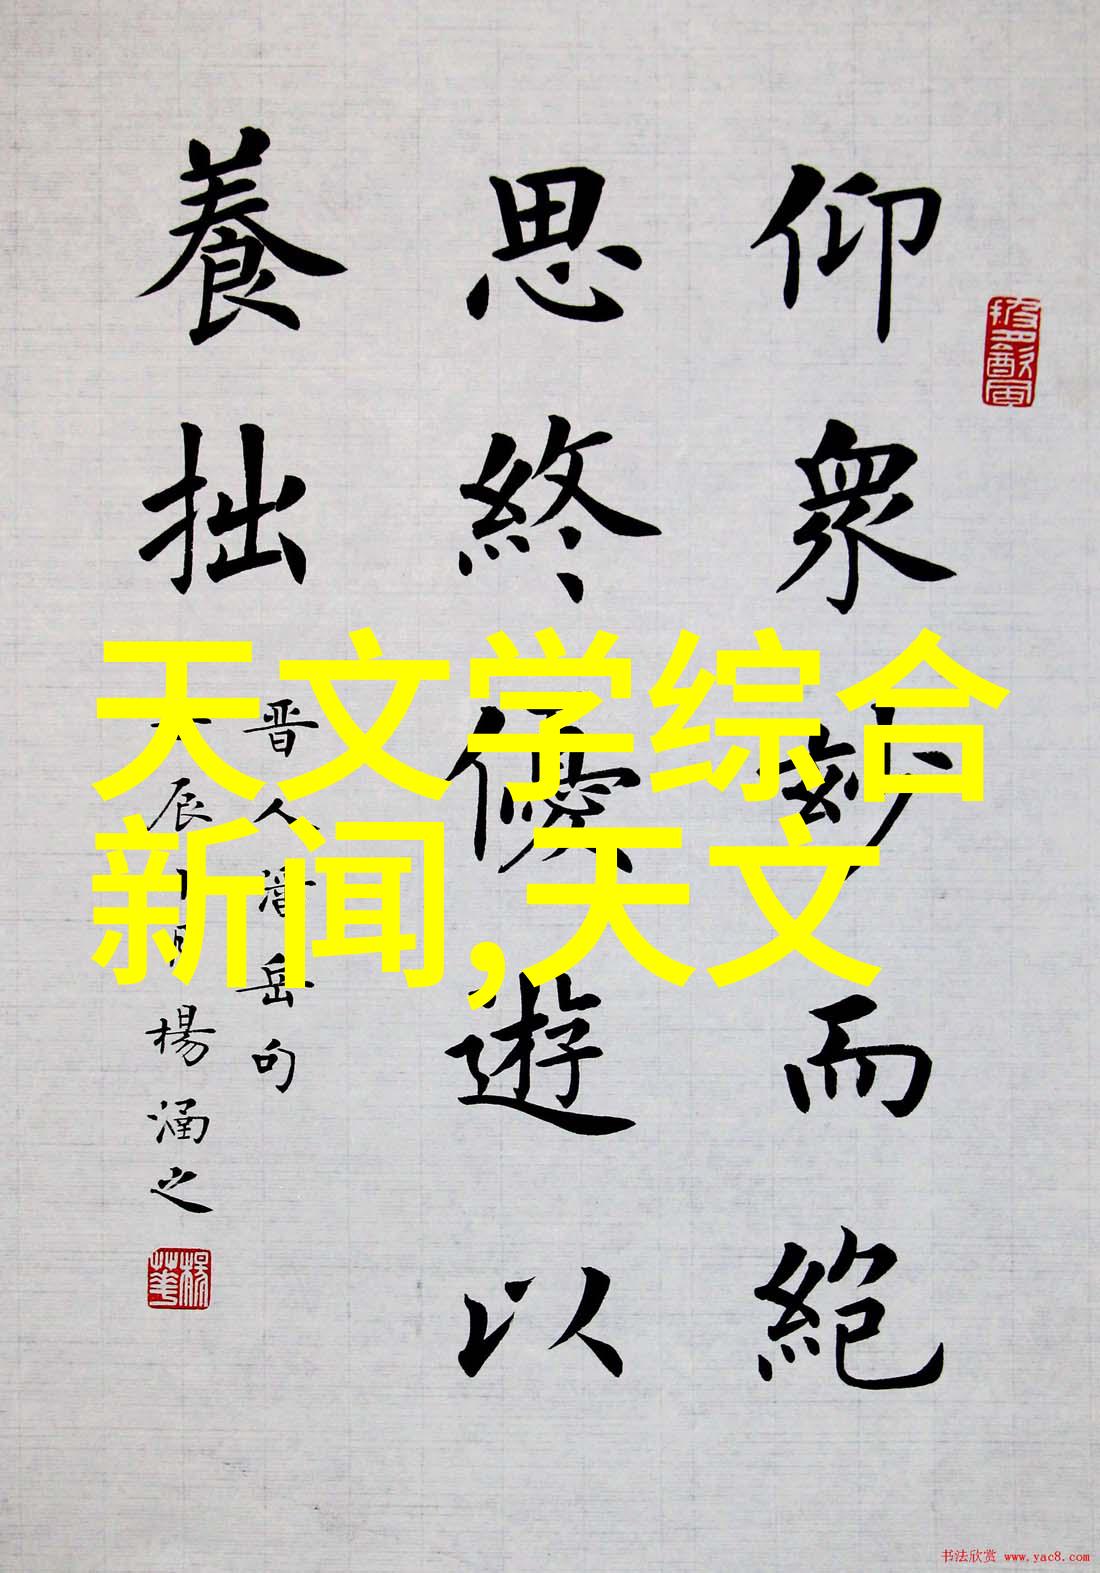 仰衆妙而絶
思終優遊以
養拙
晋人潘岳句
辰
楊涵之
天文学综合
新闻,天文
书法欣赏 www.yac8.com